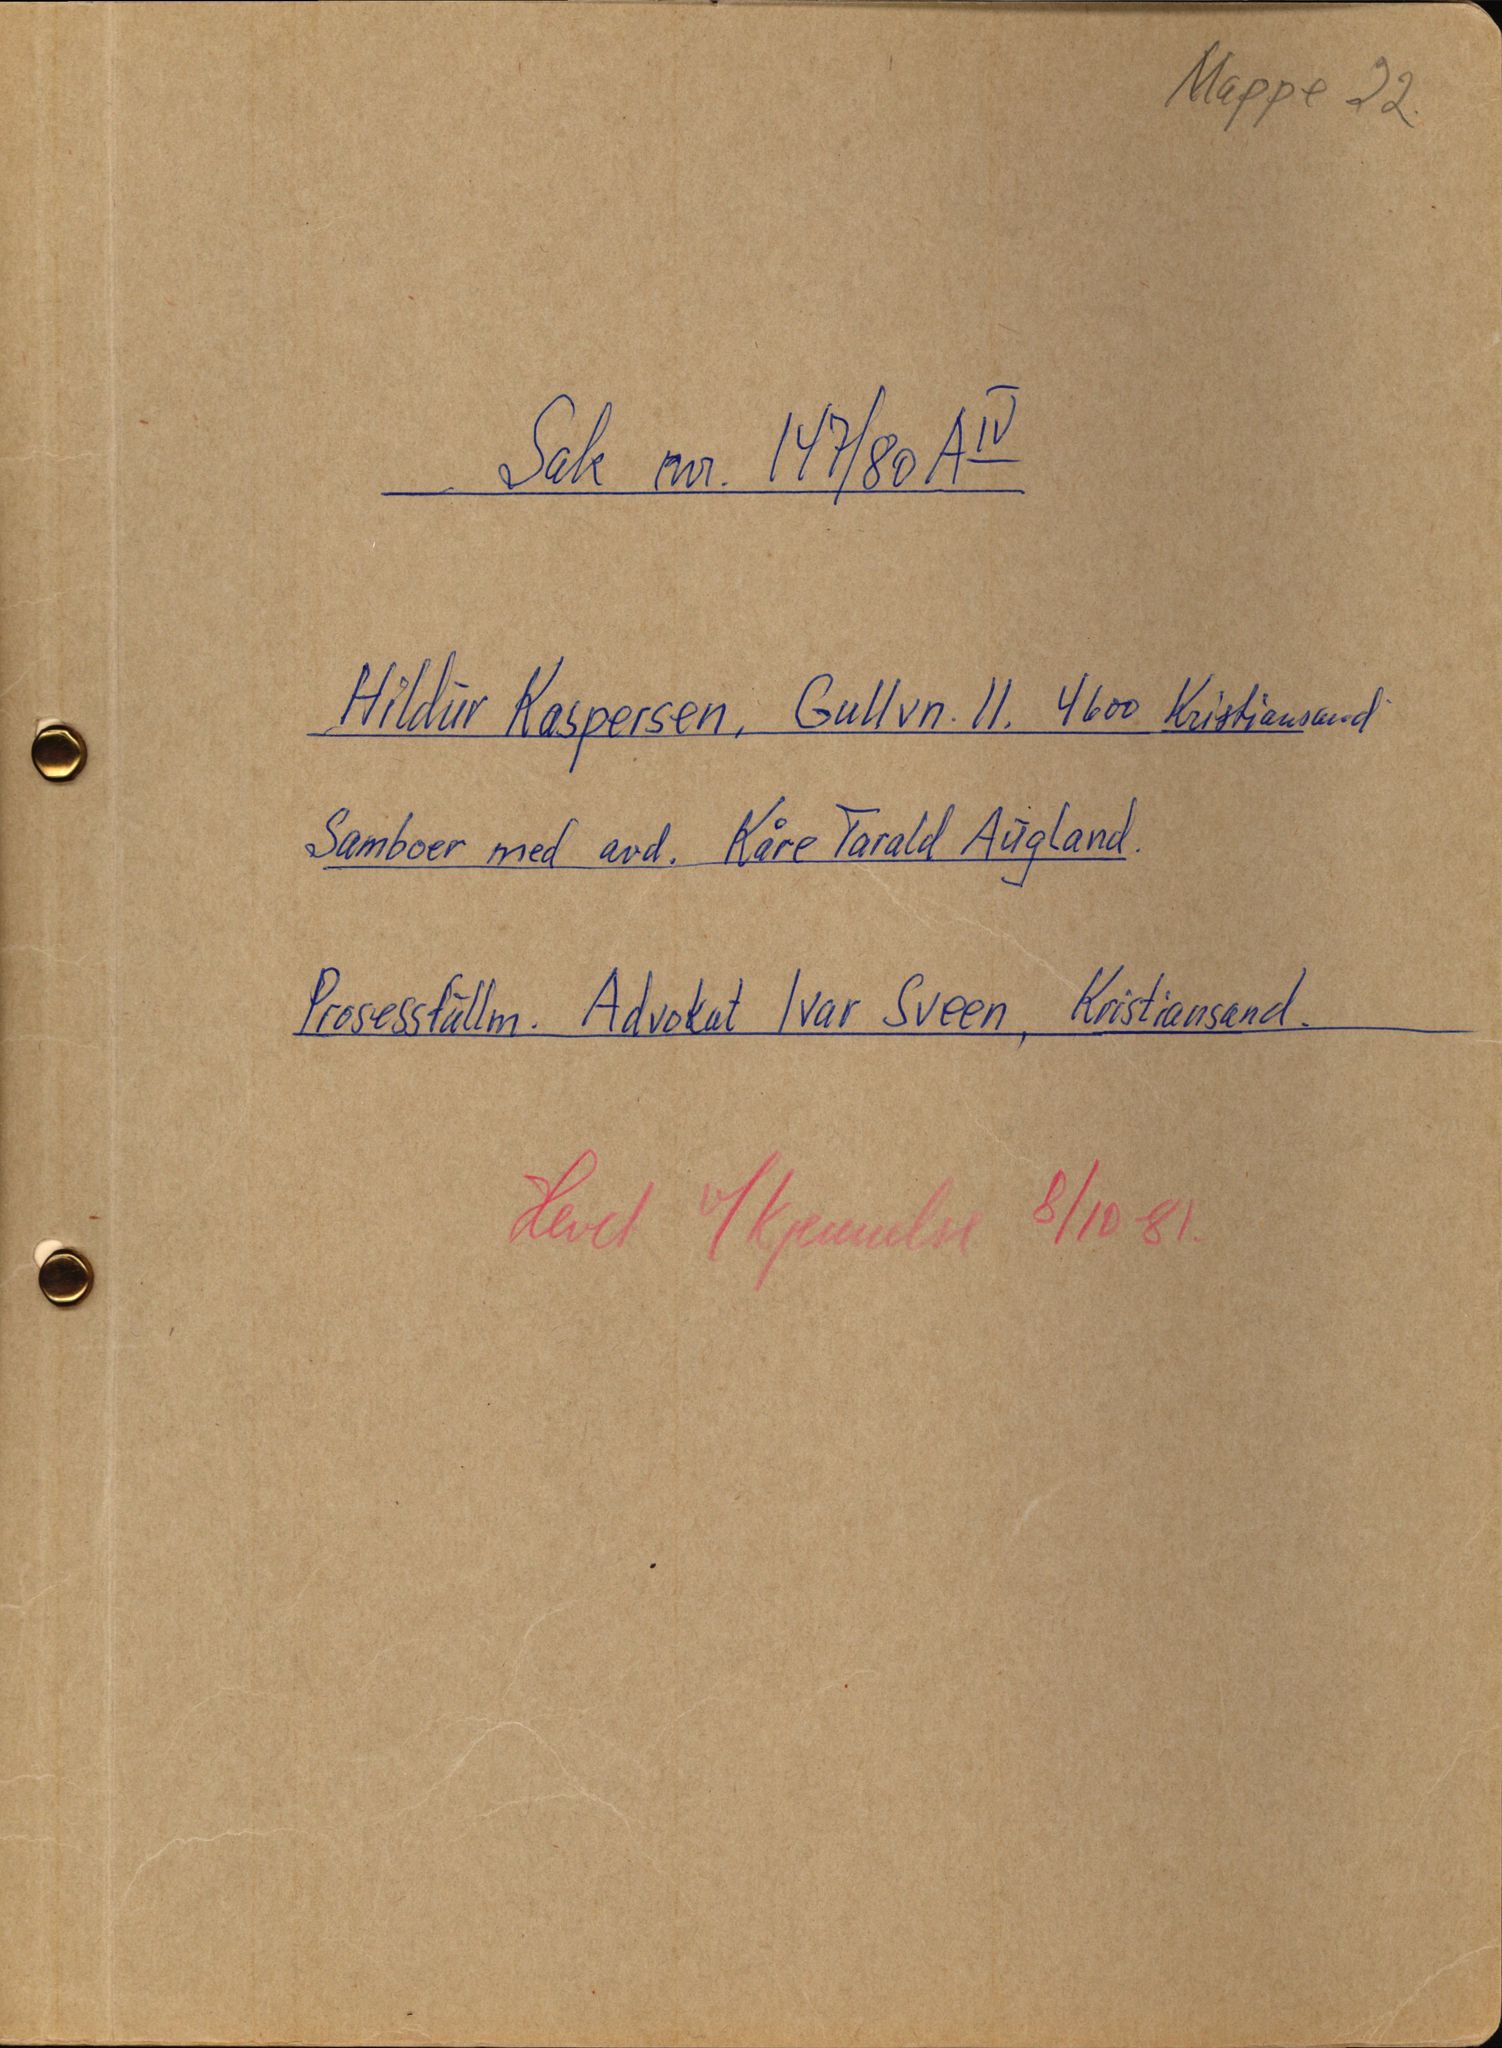 Mappe 22.
Sak nr. 147/80 A IV
Hildur Kaspersen, Gullvn. 11. 4600 Kristiansand
Samboer med avd. Kåre Tarald Augland.
Prosessfullm. Advokat Ivar Sveen, Kristiansand.
Hevet v/kjennelse 8/10 81.